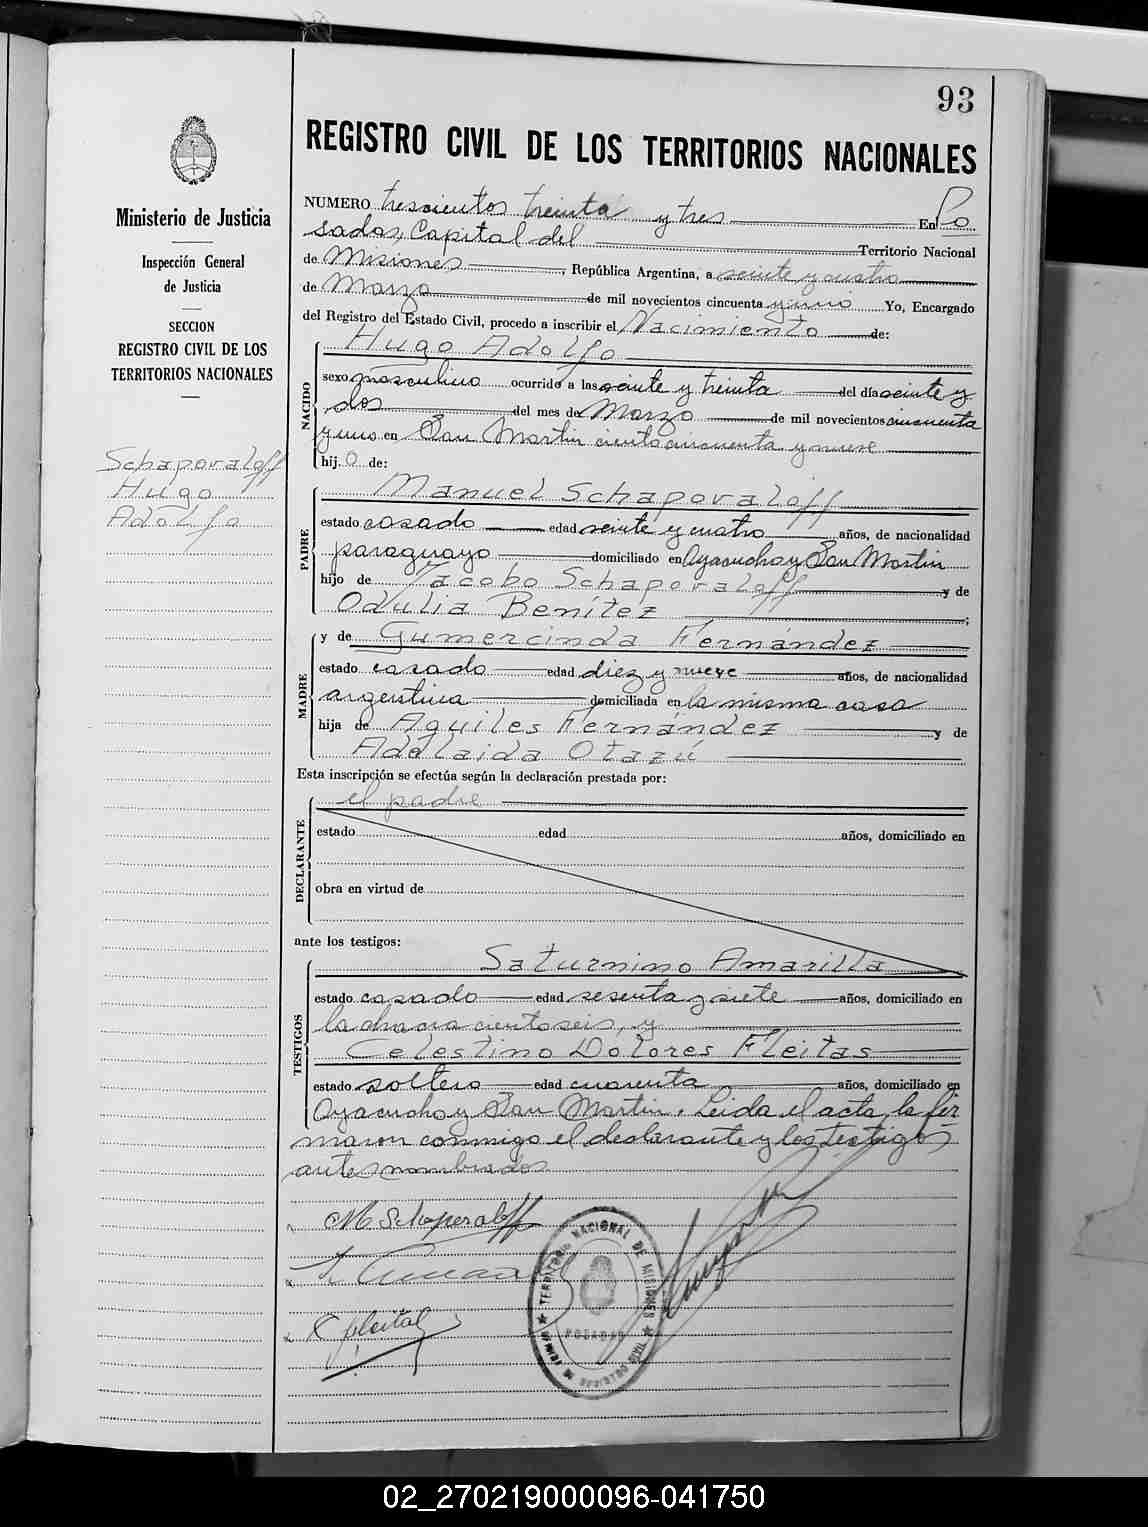 93
REGISTRO CIVIL DE LOS TERRITORIOS NACIONALES
Ministerio de Justicia
Inspección General
de Justicia
SECCION
REGISTRO CIVIL DE LOS
TERRITORIOS NACIONALES
Schapovaloff
Hugo
Adolfo
NUMERO trescientos treinta y tres En Po
sadas, Capital del Territorio Nacional
de Misiones, República Argentina, a veinte y cuatro
de Marzo de mil novecientos cincuenta y uno Yo, Encargado
del Registro del Estado Civil, procedo a inscribir el Nacimiento de:
NACIDO
Hugo Adolfo
sexo masculino ocurrido a las veinte y treinta del día veinte y
dos del mes de Marzo de mil novecientos cincuenta
y uno en San Martin ciento cincuenta y nueve
hij.o de:
PADRE
Manuel Schapovaloff
estado casado edad veinte y cuatro años, de nacionalidad
paraguayo domiciliado en Ayacucho y San Martin
hijo de Jacobo Schapovaloff y de
Odulia Benítez;
MADRE
y de Gumercinda Fernández
estado casado edad diez y nueve años, de nacionalidad
argentina domiciliada en la misma casa
hija de Aquiles Fernández y de
Adelaida Otazú
Esta inscripción se efectúa según la declaración prestada por:
DECLARANTE
el padre
estado edad años, domiciliado en
obra en virtud de
ante los testigos:
TESTIGOS
Saturnino Amarilla
estado casado edad sesenta y siete años, domiciliado en
la chacra ciento seis, y
Celestino Dolores Fleitas
estado soltero edad cuarenta años, domiciliado en
Ayacucho y San Martin. Leida el acta, la fir
maron conmigo el declarante y los testigos
antes nombrados
M Schaperaloff
TERRITORIO NACIONAL DE MISIONES
POSADAS
02_270219000096-041750